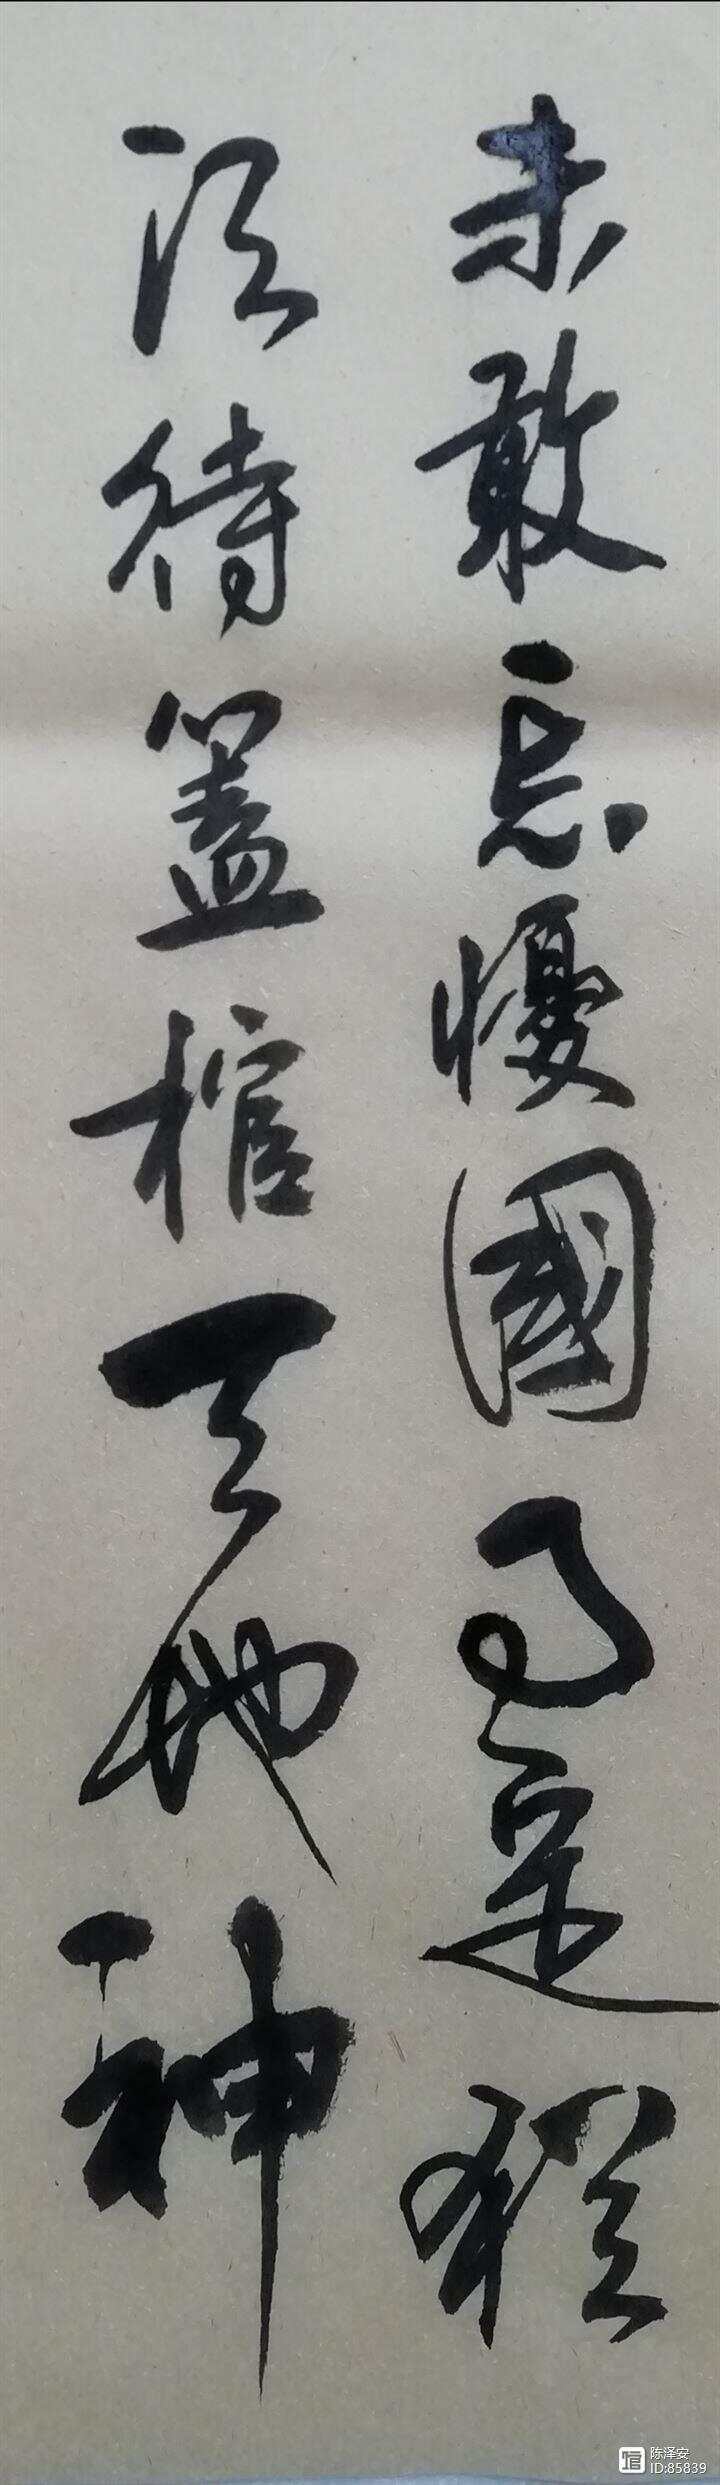 未敢忘懮國事定猶
須待蓋棺天地神
陈泽安
ID:85839